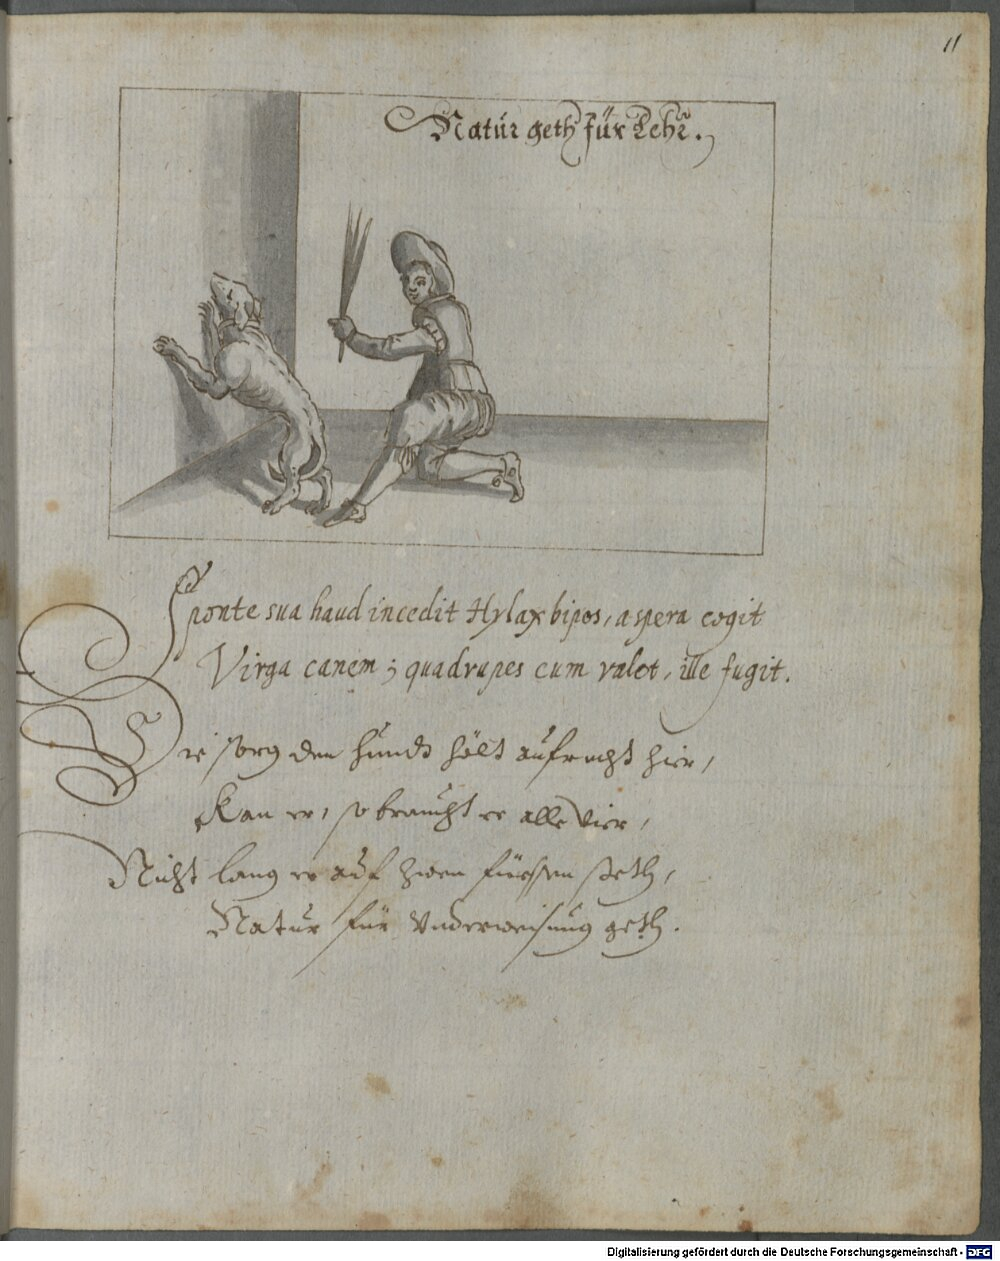 11
Natúr geth für Lehr.
Sponte sua haud incedit Hylax bipes, aspera cogit
Virga canem; quadrupes cum valet, ille fugit.
Die sorg den hundt hält aufrecht hier,
Kan er, so braucht er alle vier,
Nicht lang er auf zwen füessen steth,
Natur für Underweisung geth.
Digitalisierung gefördert durch die Deutsche Forschungsgemeinschaft - DFG